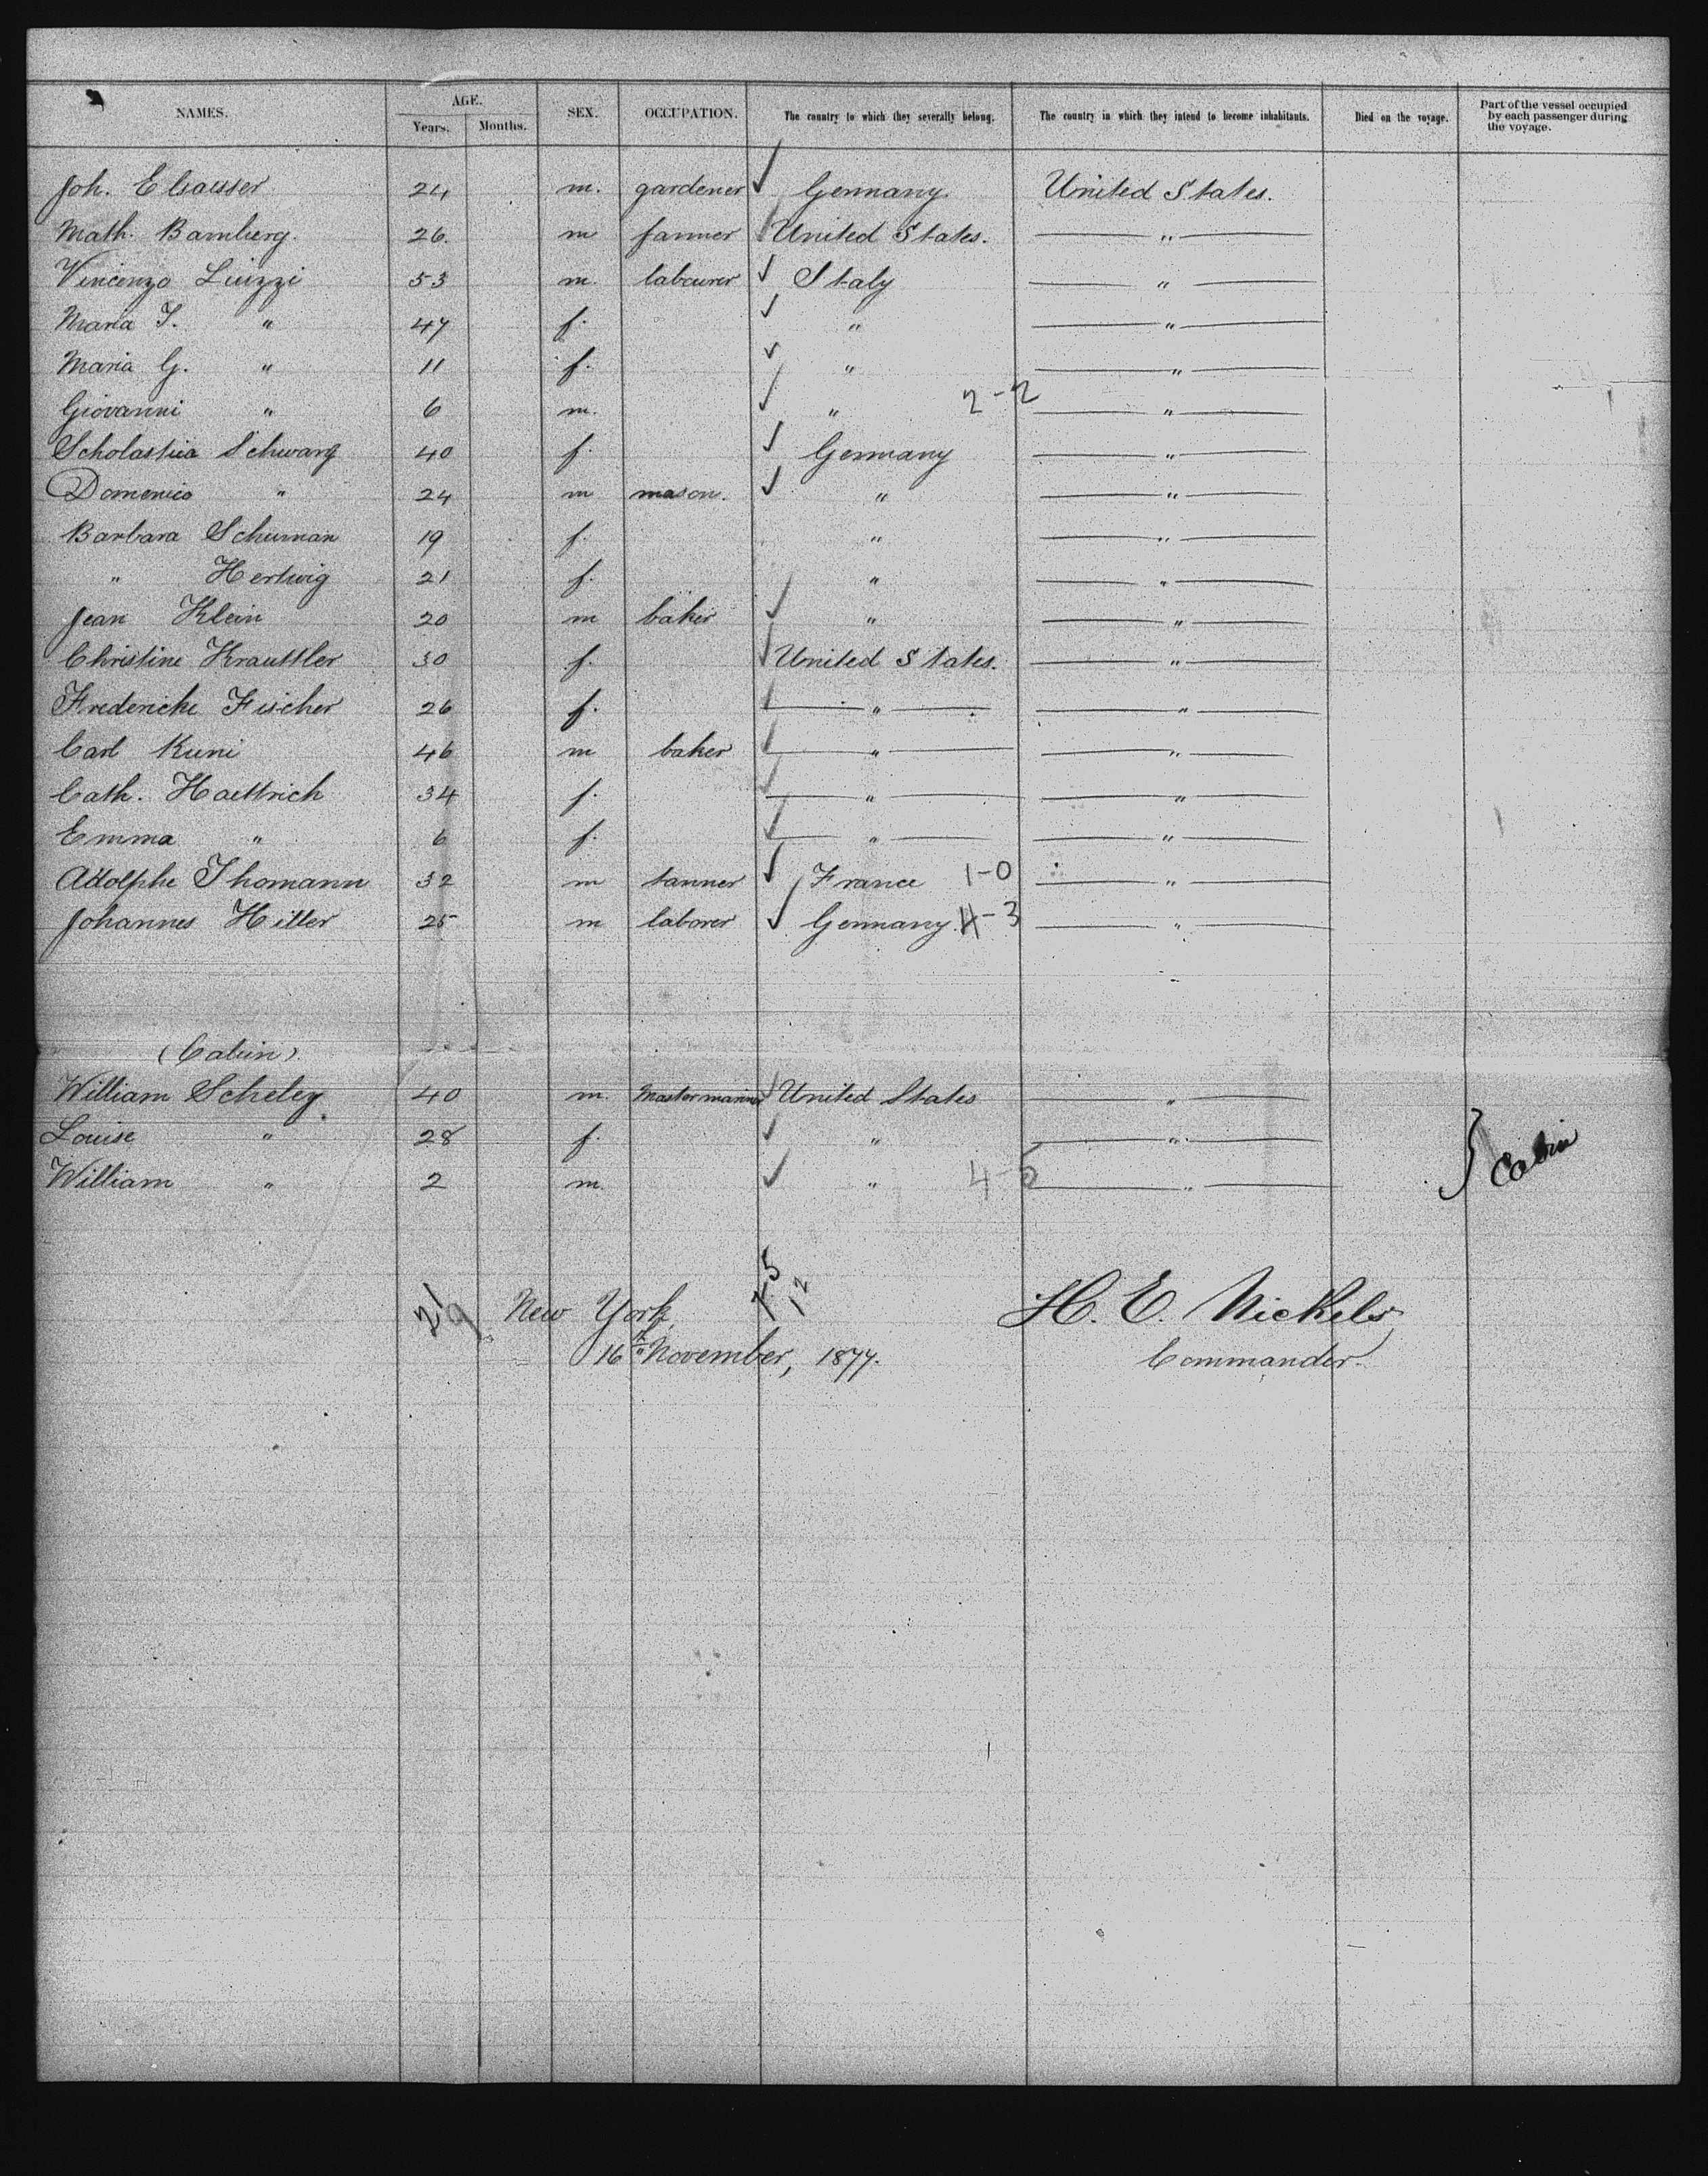 NAMES. AGE. SEX. OCCUPATION. The country to which they severally belong. The country in which they intend to become inhabitants. Died on the voyage. Part of the vessel occupied by each passenger during the voyage.
Years. Months.
Joh. Elsasser 24 m. gardener Germany United States.
Math. Bamberg. 26. m farmer United States. "
Vincenzo Luizzi 53 m. labourer Italy "
Maria T. " 47 f. " "
Maria G. " 11 f. " "
Giovanni " 6 m. " 2-2 "
Scholastica Schwarz 40 f. Germany "
Domenico " 24 m mason. " "
Barbara Schuman 19 f. " "
" Hertwig 21 f. " "
Jean Klein 20 m baker " "
Christine Krauttler 30 f. United States. "
Fredericke Fischer 26 f. " "
Carl Kuni 46 m baker " "
Cath. Haettrich 34 f. " "
Emma " 6 f. " "
Adolphe Thomann 32 m tanner France 1-0 "
Johannes Hiller 25 m laborer Germany. 4-3 "
(Cabin)
William Scheley 40 m. Master mariner United States "
Louise " 28 f. " "
William " 2 m. " 4-5 "
Cabin
21 9 New York, 12 H. E. Nickels
16th November, 1877. Commander.